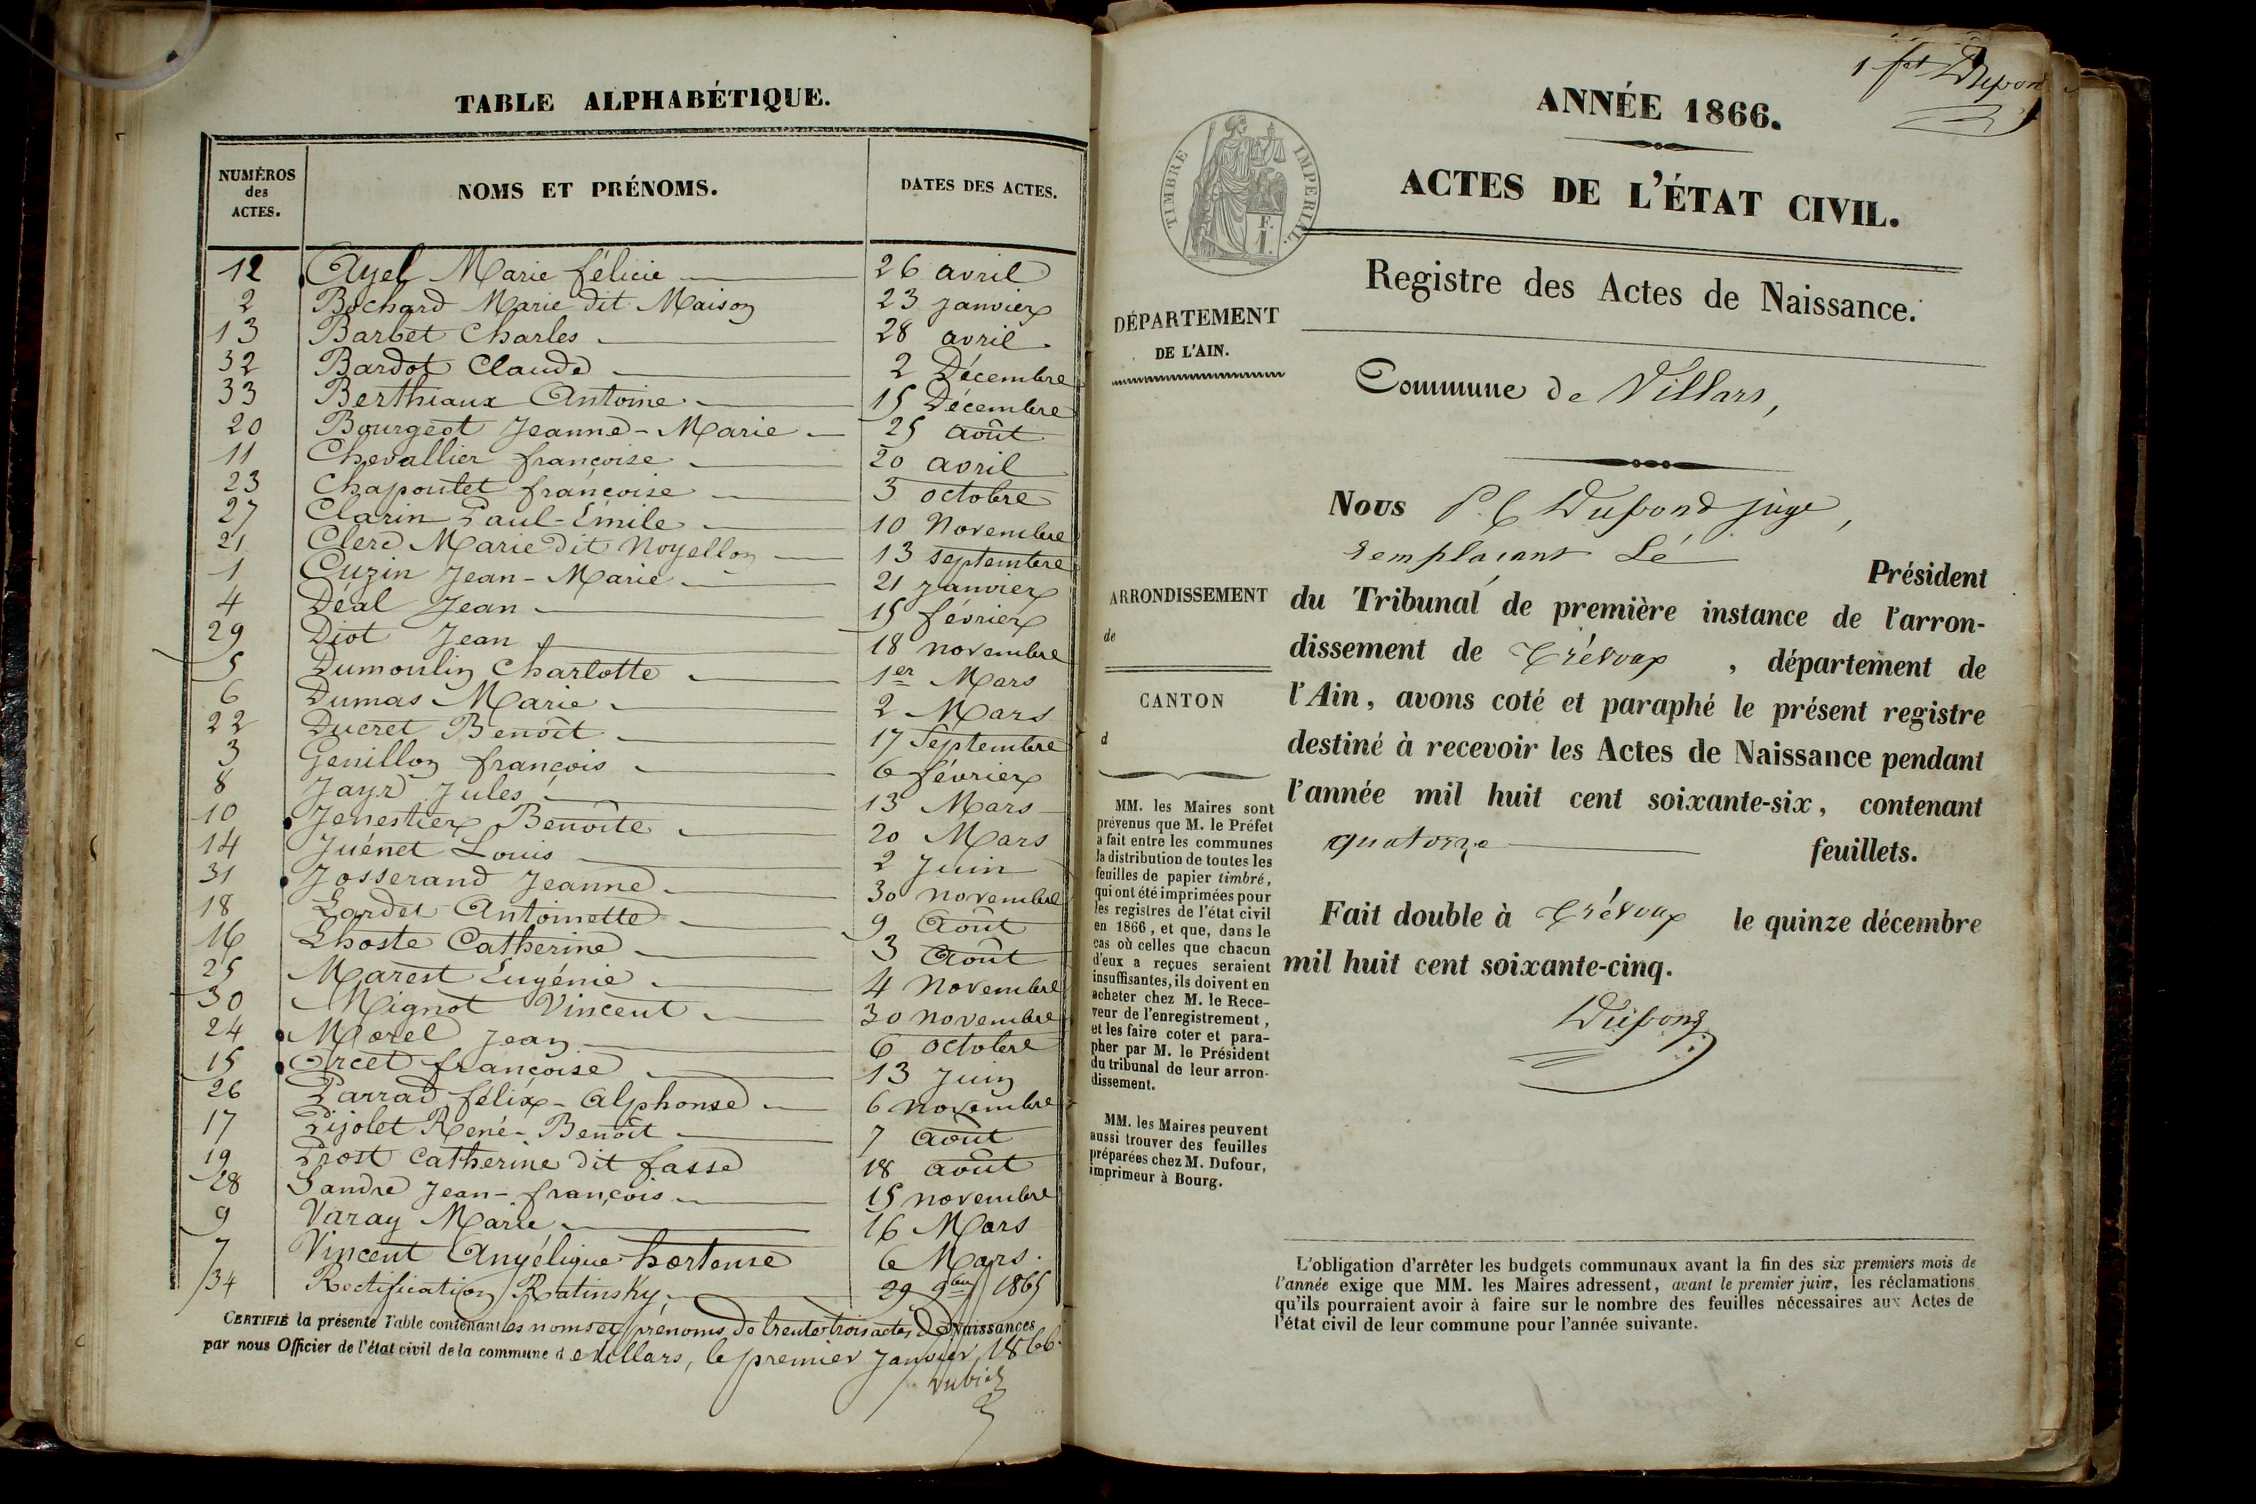 TABLE ALPHABÉTIQUE.
NUMÉROS des ACTES. NOMS ET PRÉNOMS. DATES DES ACTES.
12 Ayel Marie félicie 26 avril
2 Bochard Marie dit Maison 23 janvier
13 Barbet Charles 28 avril
32 Bardot Claude 2 Décembre
33 Berthiaux Antoine 15 Décembre
20 Bourgeot Jeanne-Marie 25 août
11 Chevallier françoise 20 avril
23 Chapoutet françoise 3 octobre
27 Clarin Paul-Émile 10 Novembre
21 Clerc Marie dit Noyellon 13 septembre
1 Cuzin Jean-Marie 21 janvier
4 Déal Jean 15 février
29 Diot Jean 18 novembre
5 Dumoulin Charlotte 1er Mars
6 Dumas Marie 2 Mars
22 Ducret Benoît 17 Septembre
3 Genillon françois 6 février
8 Jayr Jules 13 Mars
10 Jenestier Benoîte 20 Mars
14 Juénet Louis 2 Juin
31 Josserand Jeanne 30 novembre
18 Lardet Antoinette 9 Août
16 Lhoste Catherine 3 Août
25 Marest Eugénie 4 Novembre
30 Mignot Vincent 30 novembre
24 Morel Jean 6 octobre
15 Orcet françoise 13 Juin
26 Parrad félix-Alphonse 6 novembre
17 Pijolet René-Benoît 7 Août
19 Prost Catherine dit fasse 18 août
28 Sandre Jean-françois 15 novembre
9 Varay Marie 16 Mars
7 Vincent Angélique hortense 6 Mars.
34 Rectification Ratinsky 29 9bre 1865
CERTIFIÉ la présente Table contenant les noms et prénoms de trente trois actes de Naissances
par nous Officier de l'état civil de la commune de Villars, le premier Janvier 1866.
1 fet Dupond
ANNÉE 1866.
ACTES DE L'ÉTAT CIVIL.
TIMBRE IMPERIAL.
Registre des Actes de Naissance.
DÉPARTEMENT
DE L'AIN.
Commune de Villars,
Nous P. C Dupond juge,
remplaçant Lé Président
du Tribunal de première instance de l'arron-
dissement de Trévoux, département de
l'Ain, avons coté et paraphé le présent registre
destiné à recevoir les Actes de Naissance pendant
l'année mil huit cent soixante-six, contenant
quatorze feuillets.
Fait double à Trévoux le quinze décembre
mil huit cent soixante-cinq.
Dupond
ARRONDISSEMENT
de
CANTON
d
MM. les Maires sont
prévenus que M. le Préfet
a fait entre les communes
la distribution de toutes les
feuilles de papier timbré,
qui ont été imprimées pour
les registres de l'état civil
en 1866, et que, dans le
cas où celles que chacun
d'eux a reçues seraient
insuffisantes, ils doivent en
acheter chez M. le Rece-
veur de l'enregistrement,
et les faire coter et para-
pher par M. le Président
du tribunal de leur arron-
dissement.
MM. les Maires peuvent
aussi trouver des feuilles
préparées chez M. Dufour,
imprimeur à Bourg.
L'obligation d'arrêter les budgets communaux avant la fin des six premiers mois de
l'année exige que MM. les Maires adressent, avant le premier juin, les réclamations
qu'ils pourraient avoir à faire sur le nombre des feuilles nécessaires aux Actes de
l'état civil de leur commune pour l'année suivante.